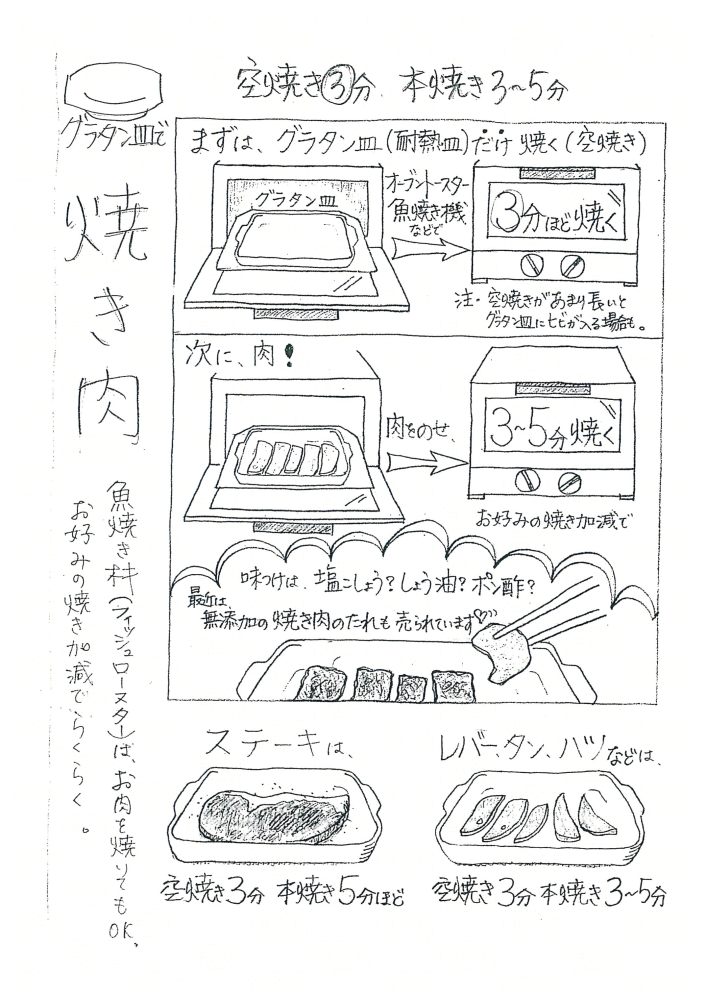 空焼き③分 本焼き3〜5分
グラタン皿で
焼き肉
魚焼き器(フィッシュロースター)は、お肉を焼いてもOK。
お好みの焼き加減でらくらく。
まずは、グラタン皿(耐熱皿)だけ焼く(空焼き)
グラタン皿
オーブントースター
魚焼き機
などで
③分ほど焼く
注・空焼きがあまり長いと
グラタン皿にヒビが入る場合も。
次に、肉!
肉をのせ、
3〜5分焼く
お好みの焼き加減で
味つけは、塩こしょう?しょう油?ポン酢?
最近は、
無添加の焼き肉のたれも売られています♡
ステーキは、
空焼き3分 本焼き5分ほど
レバー、タン、ハツなどは、
空焼き3分 本焼き3〜5分